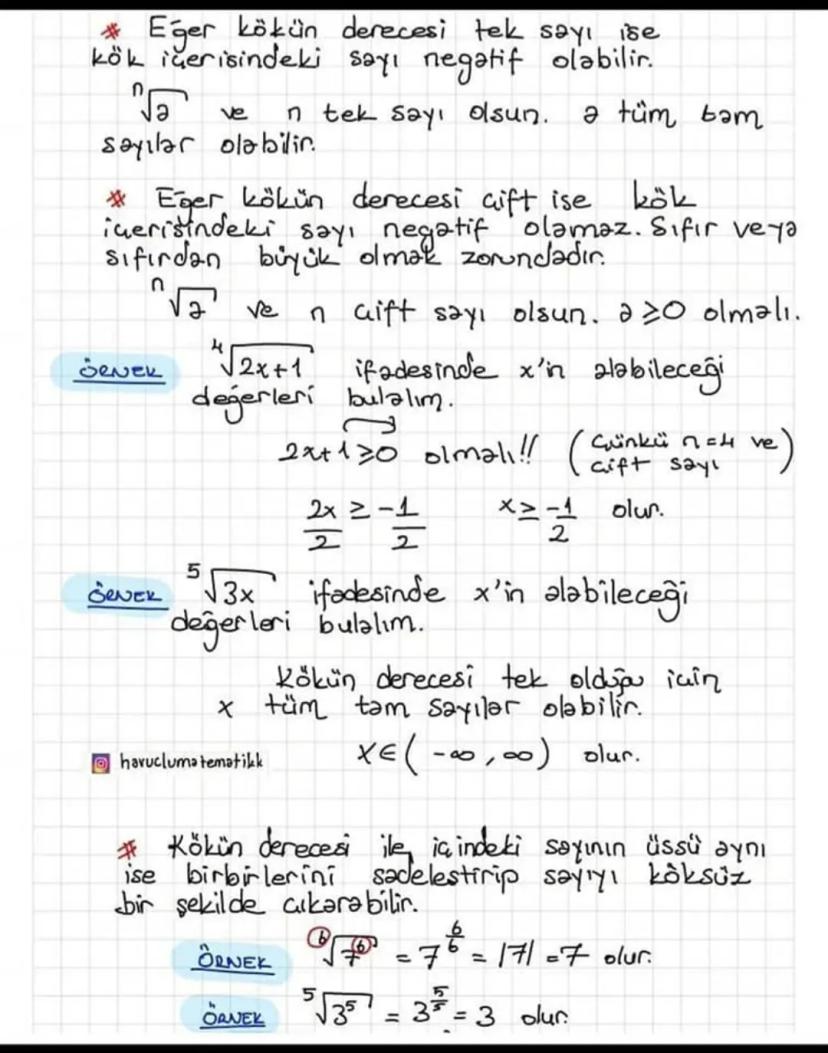 * Eğer kökün derecesi tek sayı ise
kök içerisindeki sayı negatif olabilir.
ⁿ√a ve n tek sayı olsun. a tüm tam
sayılar olabilir.
* Eğer kökün derecesi çift ise kök
içerisindeki sayı negatif olamaz. Sıfır veya
sıfırdan büyük olmak zorundadır.
ⁿ√a ve n çift sayı olsun. a ≥ 0 olmalı.
ÖRNEK ⁴√2x+1 ifadesinde x'in alabileceği
değerleri bulalım.
2x+1 ≥ 0 olmalı!! (Çünkü n=4 ve
çift sayı)
2x/2 ≥ -1/2 x ≥ -1/2 olur.
ÖRNEK ⁵√3x ifadesinde x'in alabileceği
değerleri bulalım.
Kökün derecesi tek olduğu için
x tüm tam sayılar olabilir.
havuclumatematikk x∈(-∞,∞) olur.
* Kökün derecesi ile içindeki sayının üssü aynı
ise birbirlerini sadelestirip sayıyı köksüz
bir şekilde çıkarabilir.
ÖRNEK ⁶√7⁶ = 7^(6/6) = |7| = 7 olur.
ÖRNEK ⁵√3⁵ = 3^(5/5) = 3 olur.